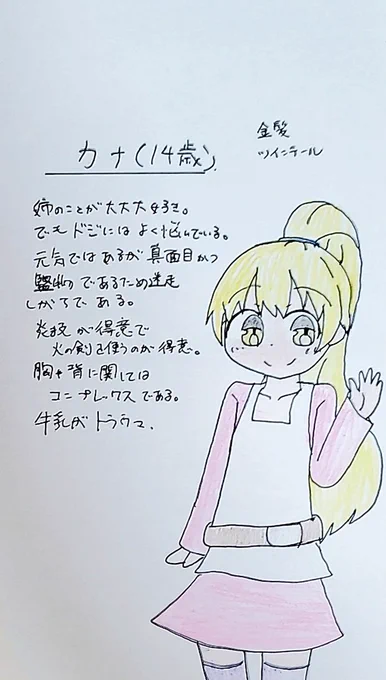 カナ(14歳)
金髪
ツインテール
姉のことが大大大好き。
でもドジにはよく悩んでいる。
元気ではあるが真面目かつ
であるため迷走
しがちである。
炎技が得意で
火の剣を使うのが得意。
胸や背に関しては
コンプレックスである。
牛乳がトラウマ.